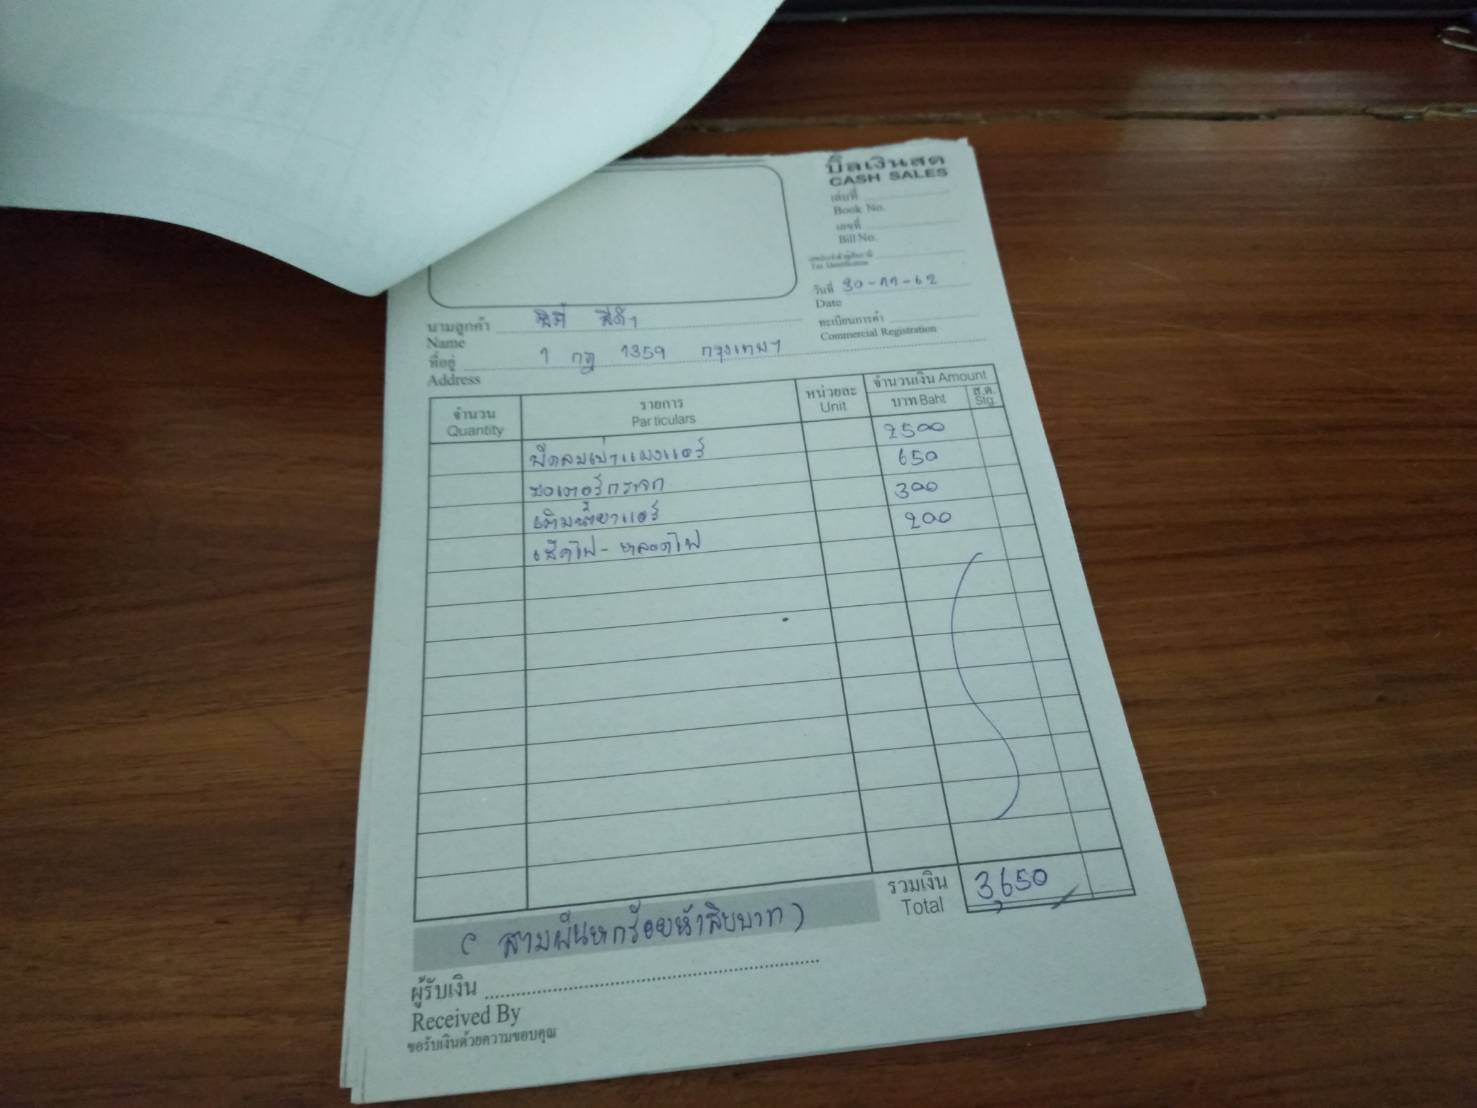 บิลเงินสด
CASH SALES
เล่มที่
Book No.
เลขที่
Bill No.
Tax Identification
วันที่ 30-กก-62
Date
นามลูกค้า
Name
ทะเบียนการค้า
Commercial Registration
ที่อยู่ 1 กฎ 1359 กรุงเทพฯ
Address
จำนวน
Quantity
รายการ
Particulars
หน่วยละ
Unit
จำนวนเงิน Amount
บาท Baht
ส.ต.
Stg.
พัดลมเป่าแผงแอร์ 2500
มอเตอร์กระจก 650
เติมน้ำยาแอร์ 300
เช็คไฟ - หลอดไฟ 200
รวมเงิน 3,650
Total
( สามพันหกร้อยห้าสิบบาท )
ผู้รับเงิน
Received By
ขอรับเงินด้วยความขอบคุณ